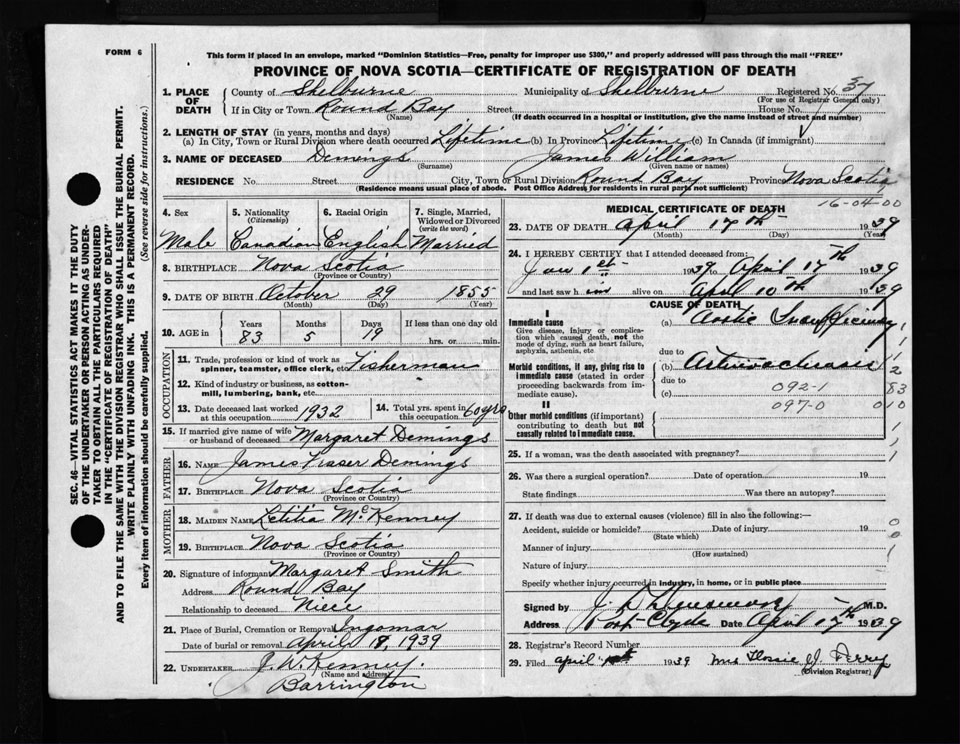 FORM 6
This form if placed in an envelope, marked "Dominion Statistics—Free, penalty for improper use $300," and properly addressed will pass through the mail "FREE"
PROVINCE OF NOVA SCOTIA—CERTIFICATE OF REGISTRATION OF DEATH
SEC. 46—VITAL STATISTICS ACT MAKES IT THE DUTY
OF THE UNDERTAKER OR PERSON ACTING AS UNDER-
TAKER TO OBTAIN ALL THE PARTICULARS REQUIRED
IN THE "CERTIFICATE OF REGISTRATION OF DEATH"
AND TO FILE THE SAME WITH THE DIVISION REGISTRAR WHO SHALL ISSUE THE BURIAL PERMIT.
WRITE PLAINLY WITH UNFADING INK. THIS IS A PERMANENT RECORD.
Every item of information should be carefully supplied. (See reverse side for instructions.)
1. PLACE OF DEATH
County of Shelburne Municipality of Shelburne Registered No. 37
(For use of Registrar General only)
If in City or Town Round Bay Street House No.
(Name) (If death occurred in a hospital or institution, give the name instead of street and number)
2. LENGTH OF STAY (in years, months and days)
(a) In City, Town or Rural Division where death occurred Lifetime (b) In Province Lifetime (c) In Canada (if immigrant)
3. NAME OF DECEASED Demings James William
(Surname) (Given name or names)
RESIDENCE No. Street City, Town or Rural Division Round Bay Province Nova Scotia
(Residence means usual place of abode. Post Office Address for residents in rural parts not sufficient)
16-04-00
4. Sex 5. Nationality (Citizenship) 6. Racial Origin 7. Single, Married, Widowed or Divorced (write the word)
Male Canadian English Married
8. BIRTHPLACE Nova Scotia
(Province or Country)
9. DATE OF BIRTH October 29 1855
(Month) (Day) (Year)
10. AGE in Years Months Days If less than one day old
83 5 19 hrs. or min.
OCCUPATION
11. Trade, profession or kind of work as spinner, teamster, office clerk, etc. Fisherman
12. Kind of industry or business, as cotton-mill, lumbering, bank, etc.
13. Date deceased last worked at this occupation 1932 14. Total yrs. spent in this occupation 60 yrs
15. If married give name of wife or husband of deceased Margaret Demings
FATHER
16. NAME James Fraser Demings
17. BIRTHPLACE Nova Scotia
(Province or Country)
MOTHER
18. MAIDEN NAME Letitia McKenney
19. BIRTHPLACE Nova Scotia
(Province or Country)
20. Signature of informant Margaret Smith
Address Round Bay
Relationship to deceased Niece
21. Place of Burial, Cremation or Removal Ingomar
Date of burial or removal April 18, 1939
22. UNDERTAKER J. W. Kenney.
(Name and address)
Barrington
MEDICAL CERTIFICATE OF DEATH
23. DATE OF DEATH April 17th 1939
(Month) (Day) (Year)
24. I HEREBY CERTIFY that I attended deceased from:
Jan 1st 1939 to April 17th 1939
and last saw him alive on April 10th 1939
CAUSE OF DEATH
I
Immediate cause (a) Aortic Insufficiency
Give disease, injury or complication which caused death, not the mode of dying, such as heart failure, asphyxia, asthenia, etc.
due to
Morbid conditions, if any, giving rise to immediate cause (stated in order proceeding backwards from immediate cause). (b)
due to 092-1
(c)
II 097-0
Other morbid conditions (if important) contributing to death but not causally related to immediate cause.
25. If a woman, was the death associated with pregnancy?
26. Was there a surgical operation? Date of operation 19
State findings Was there an autopsy?
27. If death was due to external causes (violence) fill in also the following:—
Accident, suicide or homicide? Date of injury 19
(State which)
Manner of injury
(How sustained)
Nature of injury
Specify whether injury occurred in industry, in home, or in public place
Signed by M.D.
Address Port Clyde Date April 17th 1939
28. Registrar's Record Number
29. Filed April 1939 Mrs J. Perry
(Division Registrar)